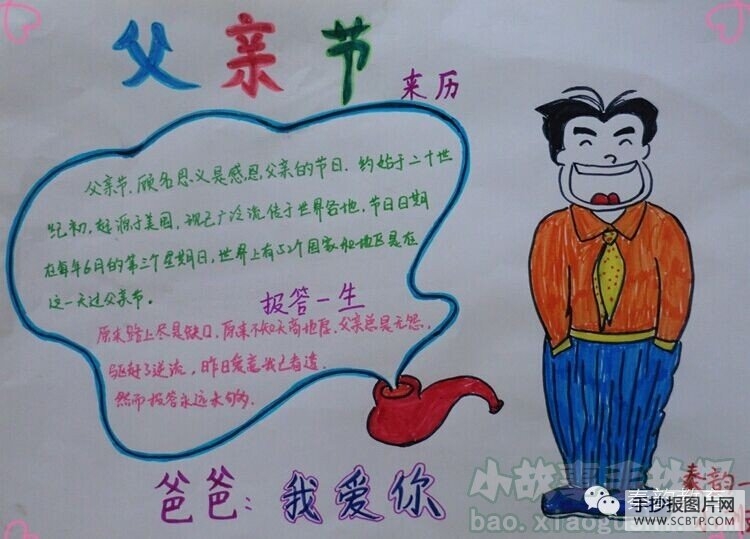 父亲节
来历
父亲节,顾名思义是感恩父亲的节日.约始于二十世
纪初,起源于美国,现已广泛流传于世界各地,节日日期
在每年6月的第三个星期日,世界上有52个国家和地区是在
这一天过父亲节。
报答一生
原来路上尽是缺口,原来不知天高地厚.父亲总是无怨.
驱赶了逆流,昨日
然而报答永远未够.
爸爸:我爱你
小故事手抄报
bao.xiaogu
秦韵一
手抄报图片网
WWW.SCBTP.COM